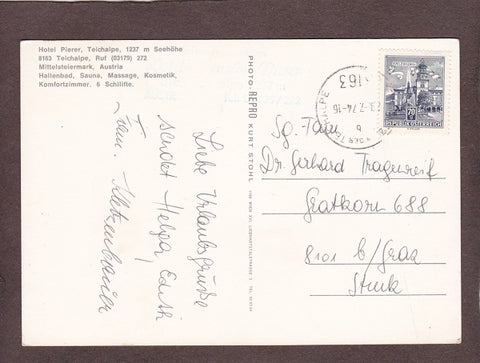 Hotel Pierer, Teichalpe, 1237 m Seehöhe
8163 Teichalpe, Ruf (03179) 272
Mittelsteiermark, Austria
Hallenbad, Sauna, Massage, Kosmetik,
Komfortzimmer. 6 Schilifte.
Liebe Urlaubsgrüße
sendet Helga, Edith
Fam.
PHOTO-REPRO KURT STOHL
163
-7.74-16
TEICHALPE
b
REPUBLIK ÖSTERREICH
Sg. Fam
Dr. Gerhard Tragenreif
Gratkorn 688
8101 b/Graz
Stmk